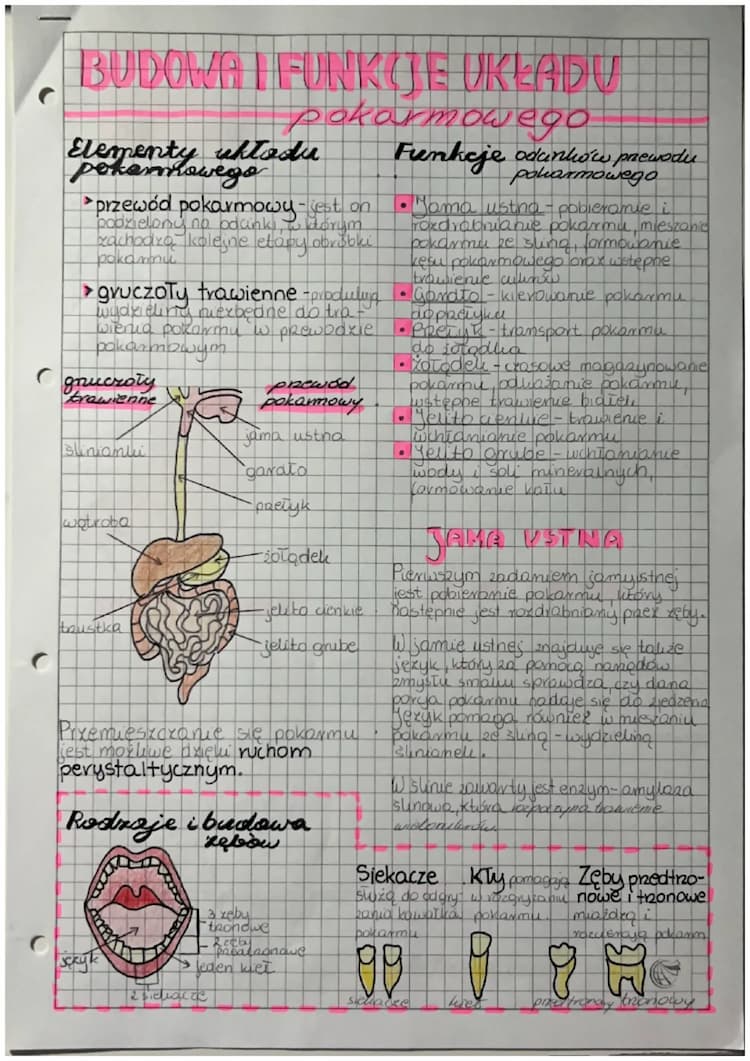 BUDOWA I FUNKCJE UKŁADU
pokarmowego
Elementy układu
pokarmowego
przewód pokarmowy - jest on
podzielony na odcinki, w którym
zachodzą kolejne etapy obróbki
pokarmu
gruczoły trawienne - produkują
wydzieliny niezbędne do tra-
wienia pokarmu w przewodzie
pokarmowym
gruczoły
trawienne
przewód
pokarmowy
ślinianki
jama ustna
gardło
przełyk
wątroba
żołądek
trzustka
jelito cienkie
jelito grube
Przemieszczanie się pokarmu
jest możliwe dzięki ruchom
perystaltycznym.
Funkcje odcinków przewodu
pokarmowego
Jama ustna - pobieranie i
rozdrabnianie pokarmu, mieszanie
pokarmu ze śliną, formowanie
kęsu pokarmowego oraz wstępne
trawienie cukrów
Gardło - kierowanie pokarmu
do przełyku
Przełyk - transport pokarmu
do żołądka
Żołądek - czasowe magazynowanie
pokarmu, odkażanie pokarmu,
wstępne trawienie białek
Jelito cienkie - trawienie i
wchłanianie pokarmu
Jelito grube - wchłanianie
wody i soli mineralnych,
formowanie kału
JAMA USTNA
Pierwszym zadaniem jamy ustnej
jest pobieranie pokarmu, który
następnie jest rozdrabniany przez zęby.
W jamie ustnej znajduje się także
język, który za pomocą narządów
zmysłu smaku sprawdza, czy dana
porcja pokarmu nadaje się do zjedzenia
Język pomaga również w mieszaniu
pokarmu ze śliną - wydzieliną
ślinianek.
W ślinie zawarty jest enzym - amylaza
ślinowa, która rozpoczyna trawienie
Rodzaje i budowa
zębów
3 zęby
trzonowe
2 zęby
przedtrzonowe
jeden kieł
język
2 siekacze
Siekacze
służą do odgry-
zania kawałka
pokarmu
Kły pomagają
w rozgryzaniu
pokarmu.
Zęby przedtrzo-
nowe i trzonowe
miażdżą i
rozcierają pokarm
siekacze kieł przedtrzonowy trzonowy